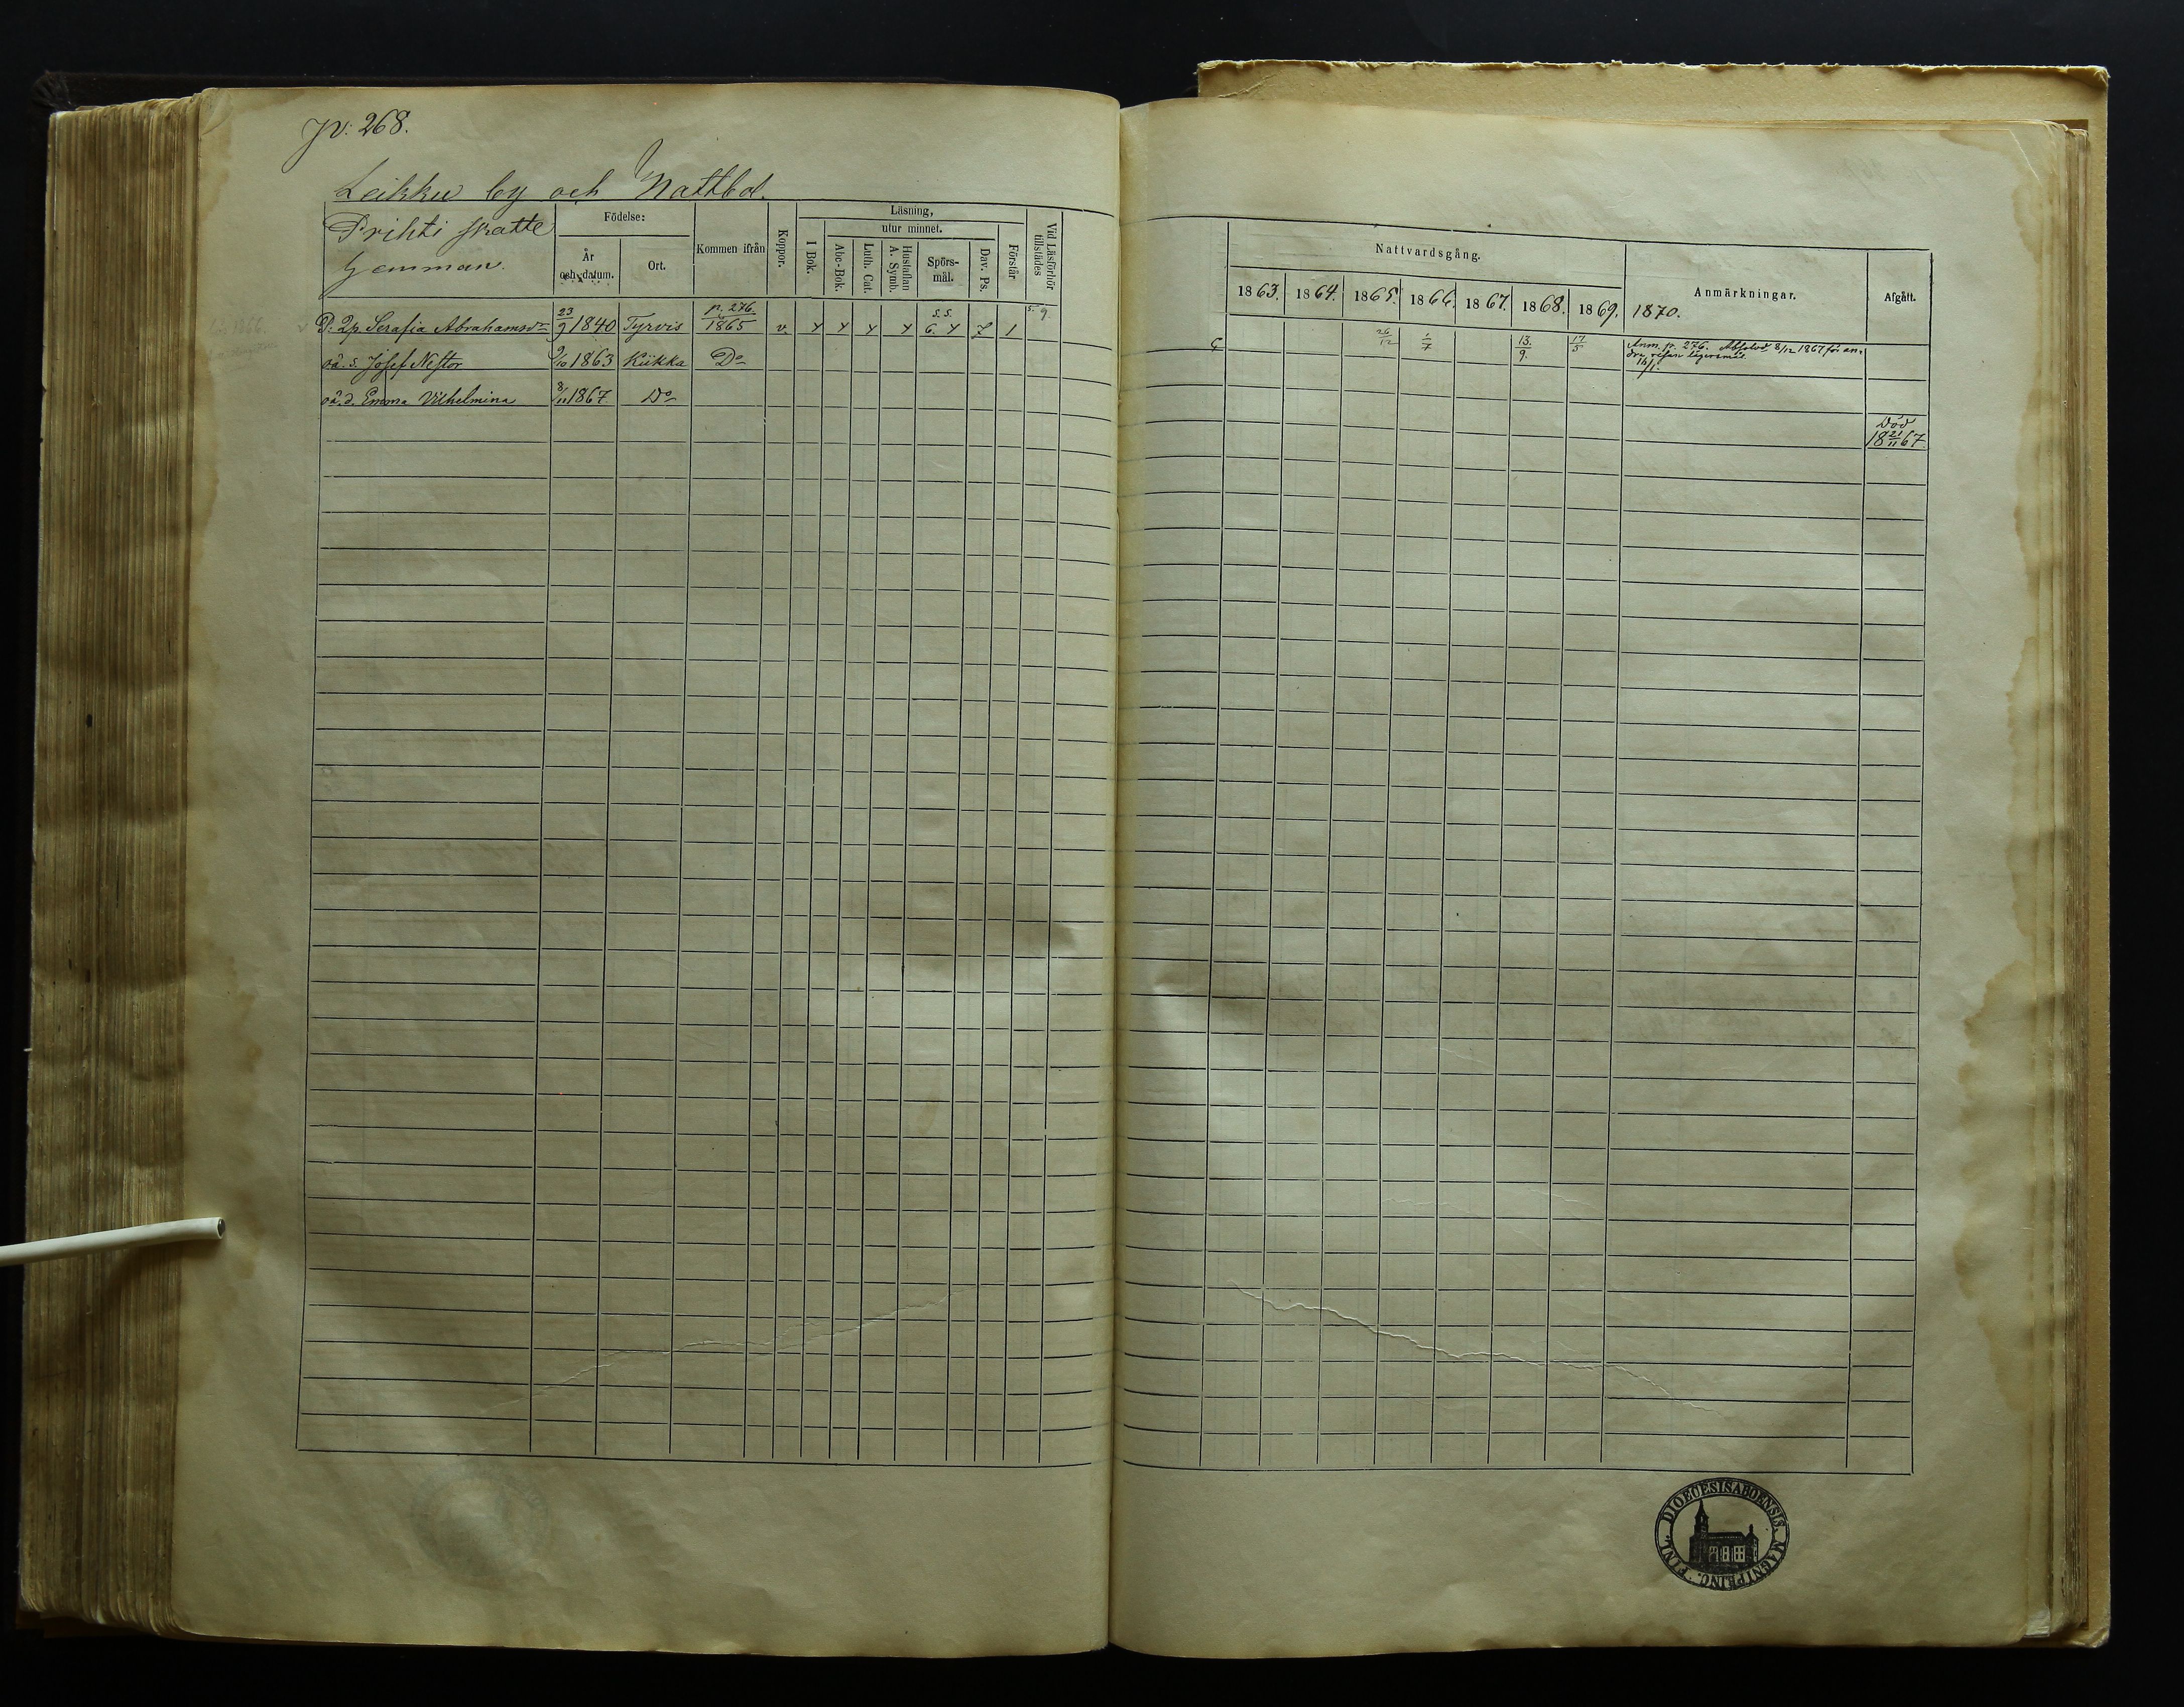 N: 268.
Leikku by och Nattbol.
Prihti skatte
hemman.
Födelse:
År
och datum.
Ort.
Kommen ifrån
Koppor.
Läsning,
I Bok.
utur minnet.
Abc-Bok.
Luth. Cat.
Hustaflan
A. Symb.
Spörs-
mål.
Dav. Ps.
Förstår
Vid Läsförhör
tillstädes
D: 2p. Serafia Abrahamsdr 23/9 1840 Tyrvis p. 276. 1865 v.
s. s.
6.
s. 9.
oä. s. Josef Nestor 9/10 1863 Kiikka Do
oä. d. Emma Vilhelmina 8/11 1867. Do
Nattvardsgång.
1863. 1864. 1865. 1866. 1867. 1868. 1869. 1870.
Anmärkningar.
Afgått.
26/12 1/7 13/9. 17/5
Anm. p. 276. Absolv. 8/12 1867 för an-
dra resan lägersmål.
Död
18 21/11 67.
FINL. DIOECESIS ABOENSIS. MAGNI PRINC.